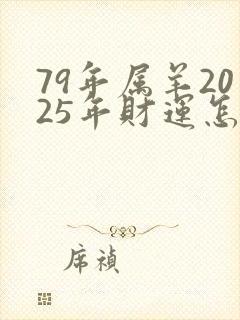 79年属羊20
25年财运怎
席祯